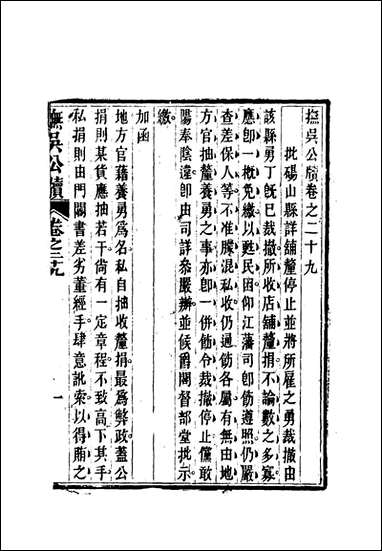 撫吳公牘卷之二十九
批碭山縣詳舖釐停止並將所雇之勇裁撤由
該縣勇丁既已裁撤所收店舖釐捐不論數之多寡
應卽一槪免繳以甦民困仰江藩司卽飭遵照仍嚴
查差保人等不准朦混私收仍通飭各屬有無由地
方官抽釐養勇之事亦卽一併飭令裁撤停止儻敢
陽奉陰違卽由司詳叅嚴辦並候爵閣督部堂批示
繳
加函
地方官藉養勇爲名私自抽收釐捐最爲弊政蓋公
捐則某貨應抽若干尙有一定章程不致高下其手
私捐則由門閽書差劣董經手肆意訛索以得賄之
撫吳公牘
卷之二十九
一